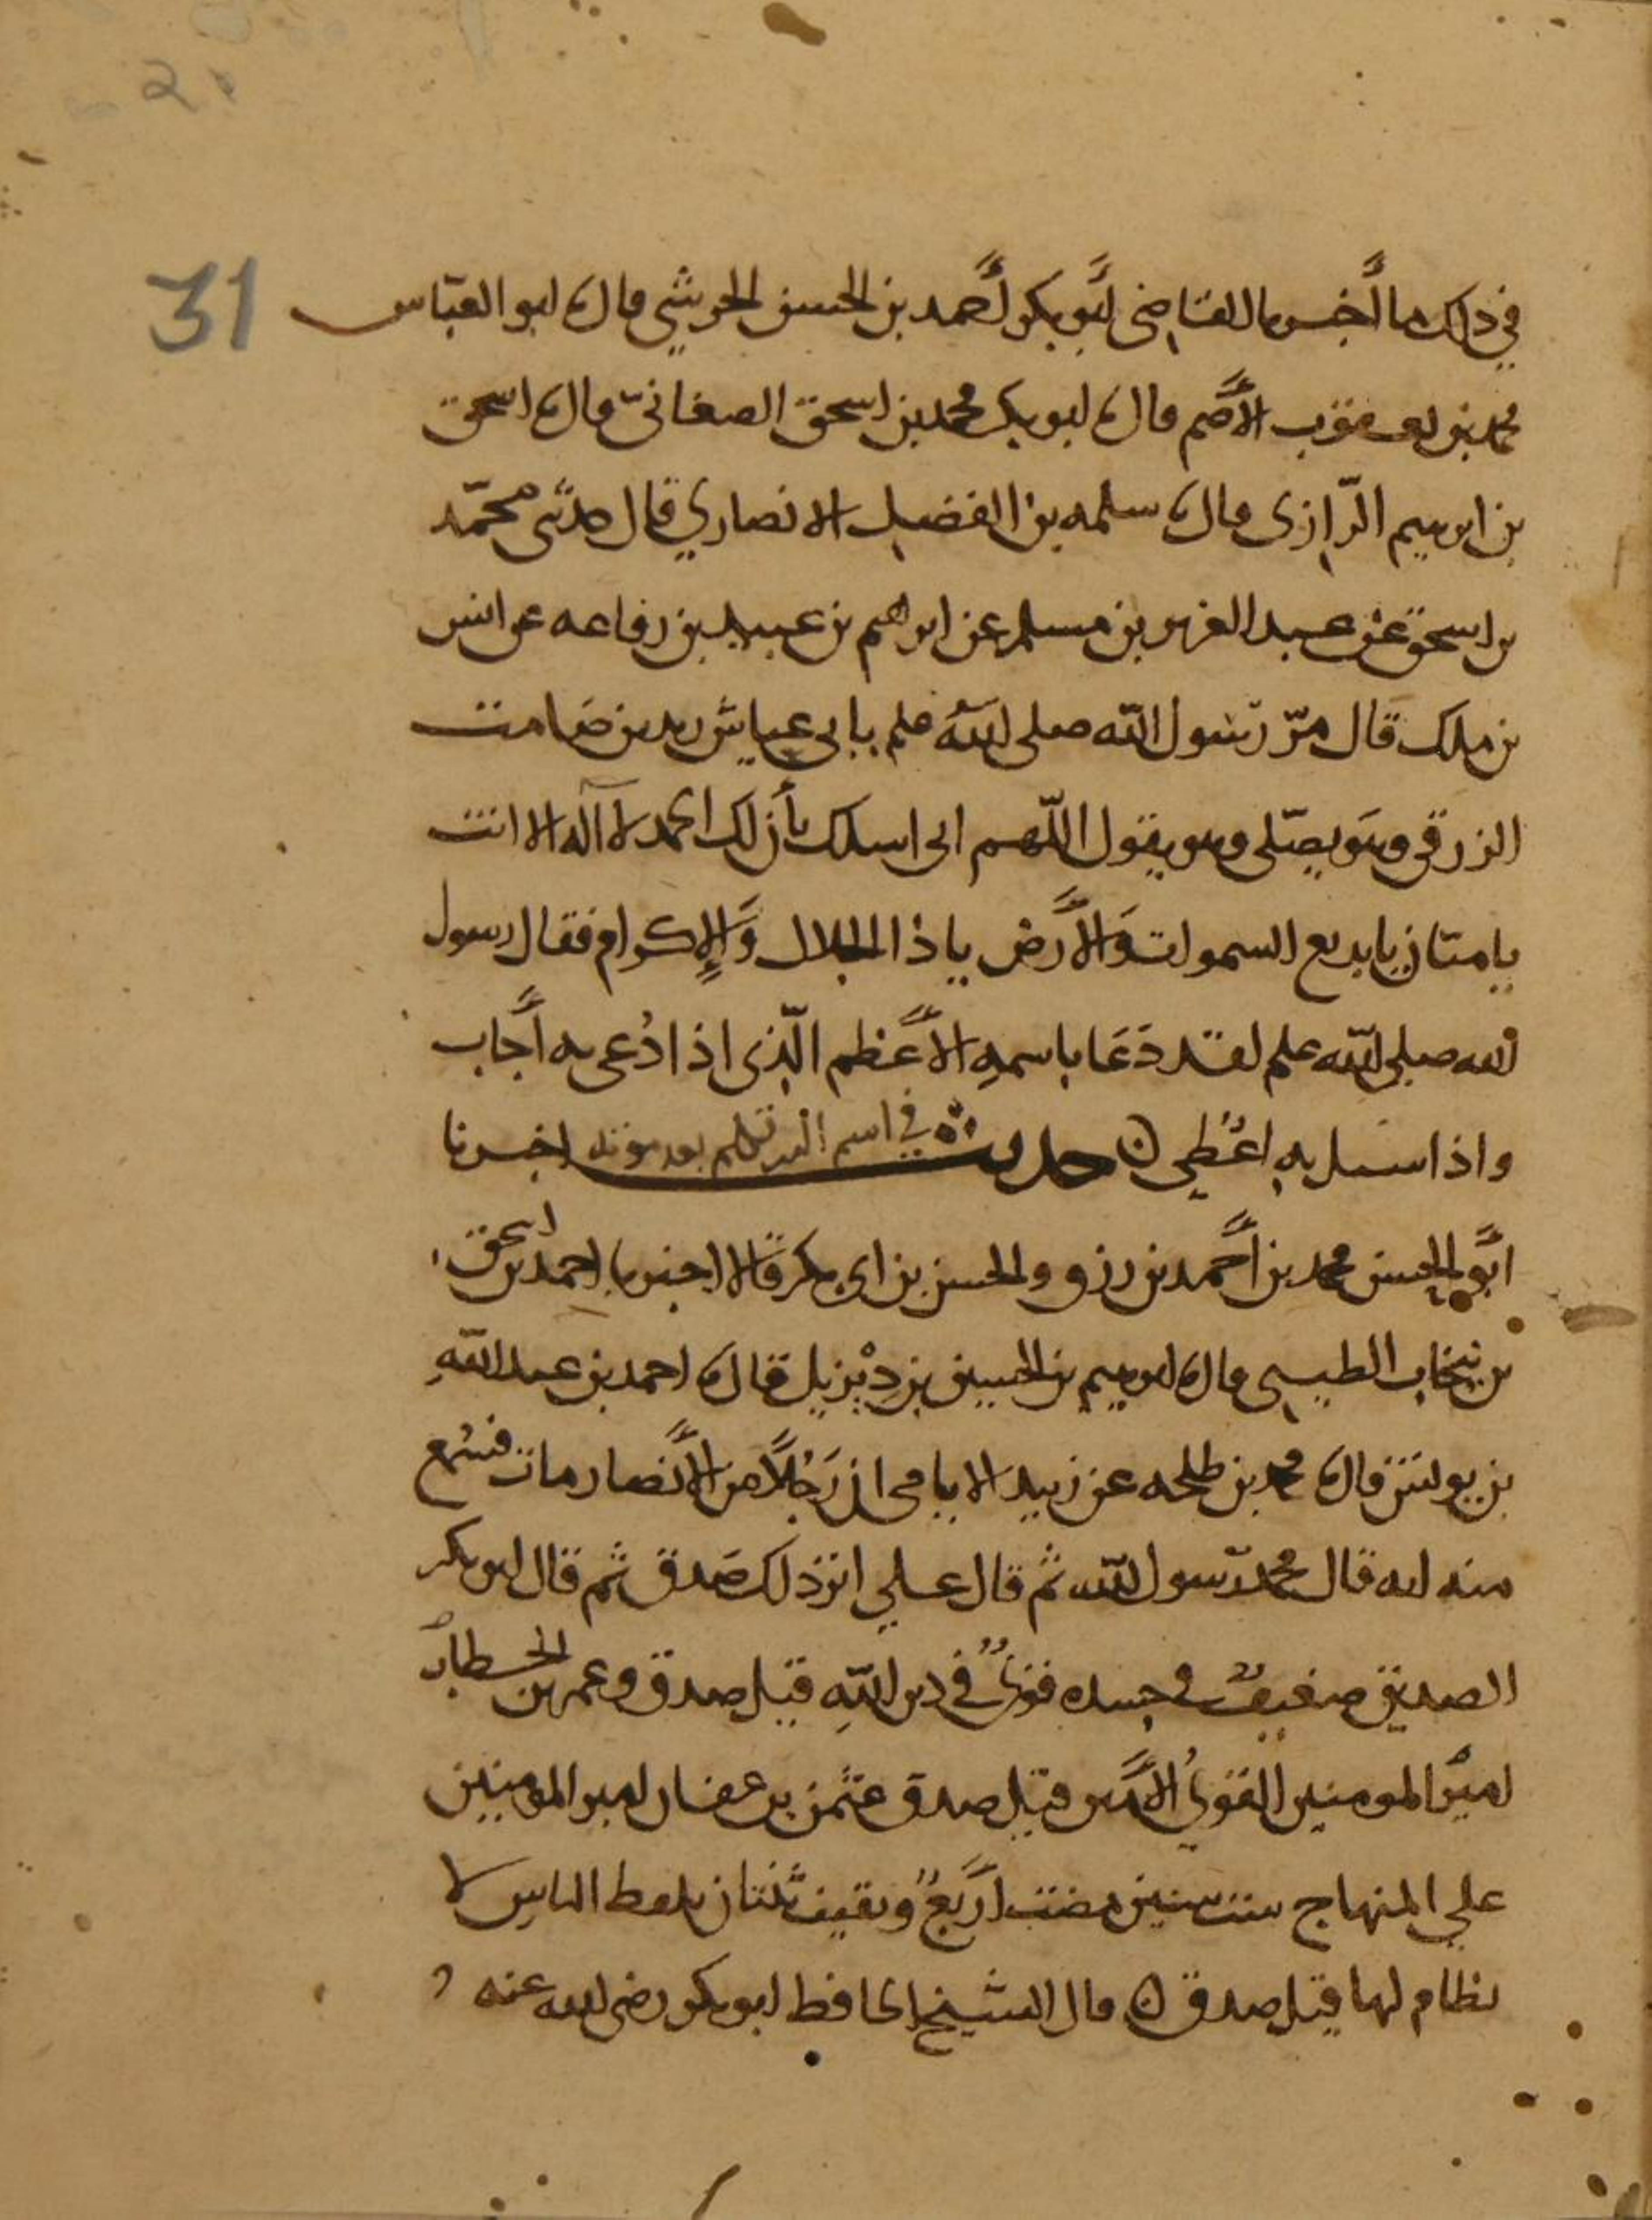 31
في ذلك ما أخبرنا القاضي أبو بكر أحمد بن الحسن الحرشي قال ابو العباس
محمد بن يعقوب الأصم قال ابو بكر محمد بن اسحق الصغاني قال اسحق
بن ابرهيم الرازي قال سلمه بن الفضل الانصاري قال حدثني محمد
بن اسحق عن عبد العزيز بن مسلم عن ابراهيم بن عبيد بن رفاعه عن انس
بن ملك قال مر رسول الله صلى الله علم بابي عياش زيد بن صامت
الزرقي وهو يصلي وهو يقول اللهم اني اسلك بأن لك الحمد لا آله الا انت
يا منان يا بديع السموات والأرض يا ذا الجلال والإكرام فقال رسول
الله صلى الله علم لقد دعا باسمه الأعظم الذي اذا دعي به أجاب
واذا اسئل به اعطي حديث في اسم الذي تكلم بعد موته اخبرنا
أبو الحسن محمد بن أحمد بن رزق والحسن بن ابي بكر قالا اخبرنا احمد بن اسحق
بن نيخاب الطيبي قال ابرهيم بن الحسين بن ديزيل قال احمد بن عبد الله
بن يونس قال محمد بن طلحه عن زبيد الايامي ان رجلا من الأنصار مات فسمع
منه انه قال محمد رسول الله ثم قال علي اثر ذلك صدق ثم قال ابو بكر
الصديق ضعيف في جسده قوي في دين الله قيل صدق وعمر بن الخطاب
امير المومنين القوي الأمين قيل صدق عثمن بن عفان امير المومنين
علي المنهاج ست سنين مضت أربع وبقيت ثنتان الناس لا
نظام لها قيل صدق قال الشيخ الحافظ ابو بكر رضي الله عنه